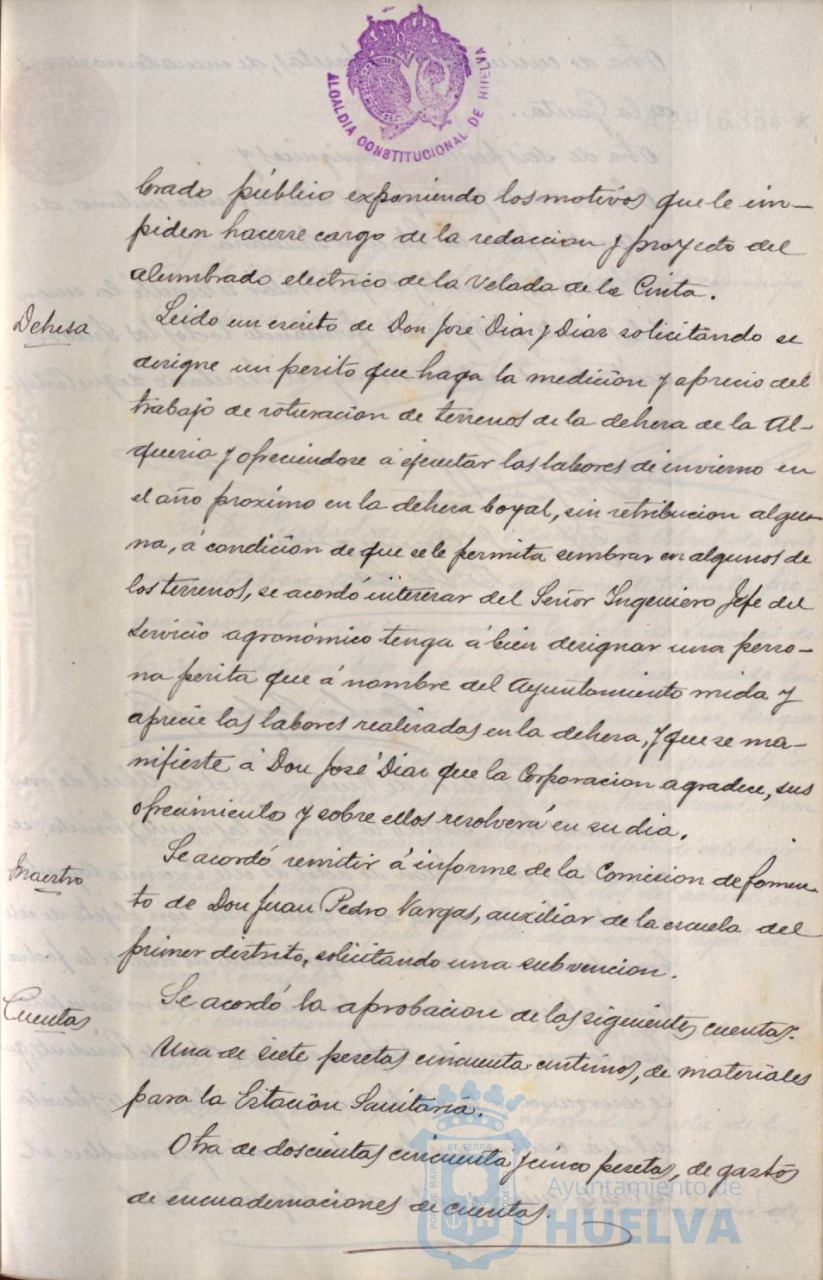 ALCALDIA CONSTITUCIONAL DE HUELVA
brado público exponiendo los motivos que le im-
piden hacerse cargo de la redaccion y proyecto del
alumbrado electrico de la Velada de la Cinta.
Dehesa
Leido un escrito de Don José Diaz y Diaz solicitando se
designe un perito que haga la medición y aprecio del
trabajo de roturacion de terrenos de la dehesa de la Al-
queria y ofreciendose á ejecutar las labores de invierno en
el año proximo en la dehesa boyal, sin retribucion algu-
na, á condición de que se le permita sembrar en algunos de
los terrenos, se acordó interesar del Señor Ingeniero Jefe del
servicio agronómico tenga á bien designar una perso-
na perita que á nombre del Ayuntamiento mida y
aprecie las labores realizadas en la dehesa, y que se ma-
nifieste á Don José Diaz que la Corporacion agradece, sus
ofrecimiento y sobre ellos resolverá en su dia.
Maestro
Se acordó remitir á informe de la Comision de fomen-
to de Don Juan Pedro Vargas, auxiliar de la escuela del
primer distrito, solicitando una subvencion.
Cuentas
Se acordó la aprobacion de las siguientes cuentas:
Una de siete pesetas cincuenta centimos, de materiales
para la Estación Sanitaria.
Otra de doscientas cincuenta y cinco pesetas, de gastos
de encuadernaciones de cuentas.
Ayuntamiento de
HUELVA